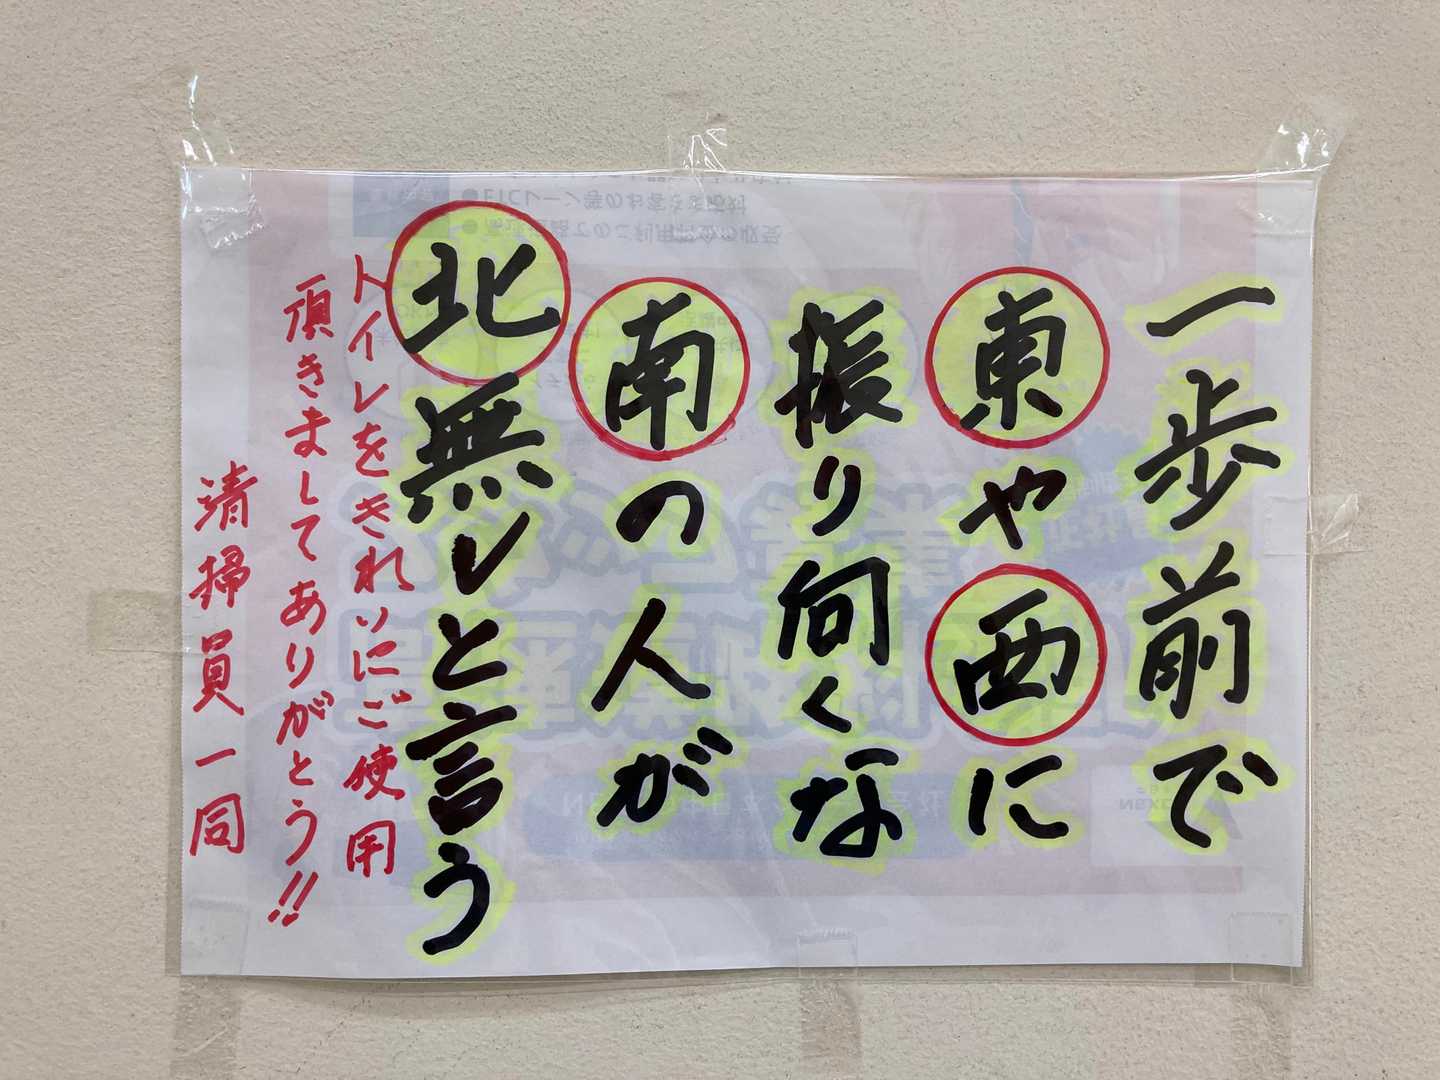 一歩前で
東や西に
振り向くな
南の人が
北無レと言う
トイレをきれいにご使用
頂きましてありがとう!!
清掃員一同